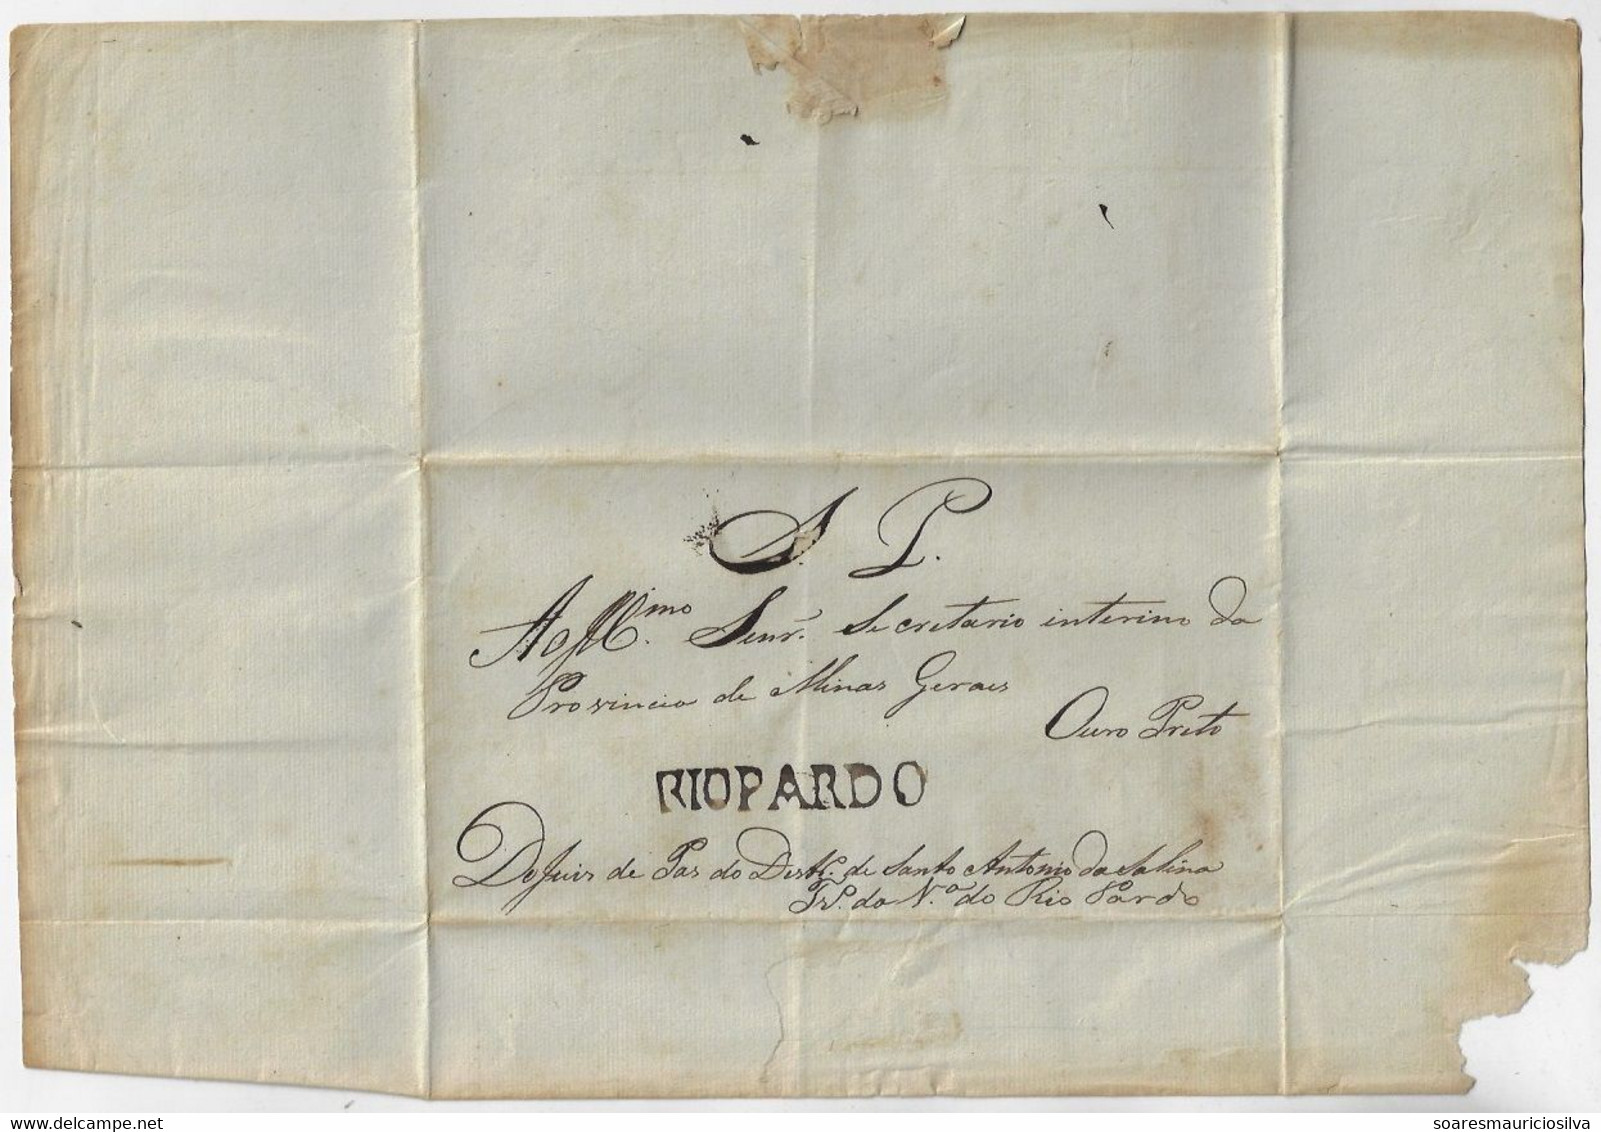 S. P.
Ao Ill.mo Senr. Secretario interino da
Provincia de Minas Geraes
Ouro Preto
RIOPARDO
Do Juis de Pas do Destr.o de Santo Antonio da Salina
Tr.o da V.a do Rio Pardo
soaresmauriciosilva